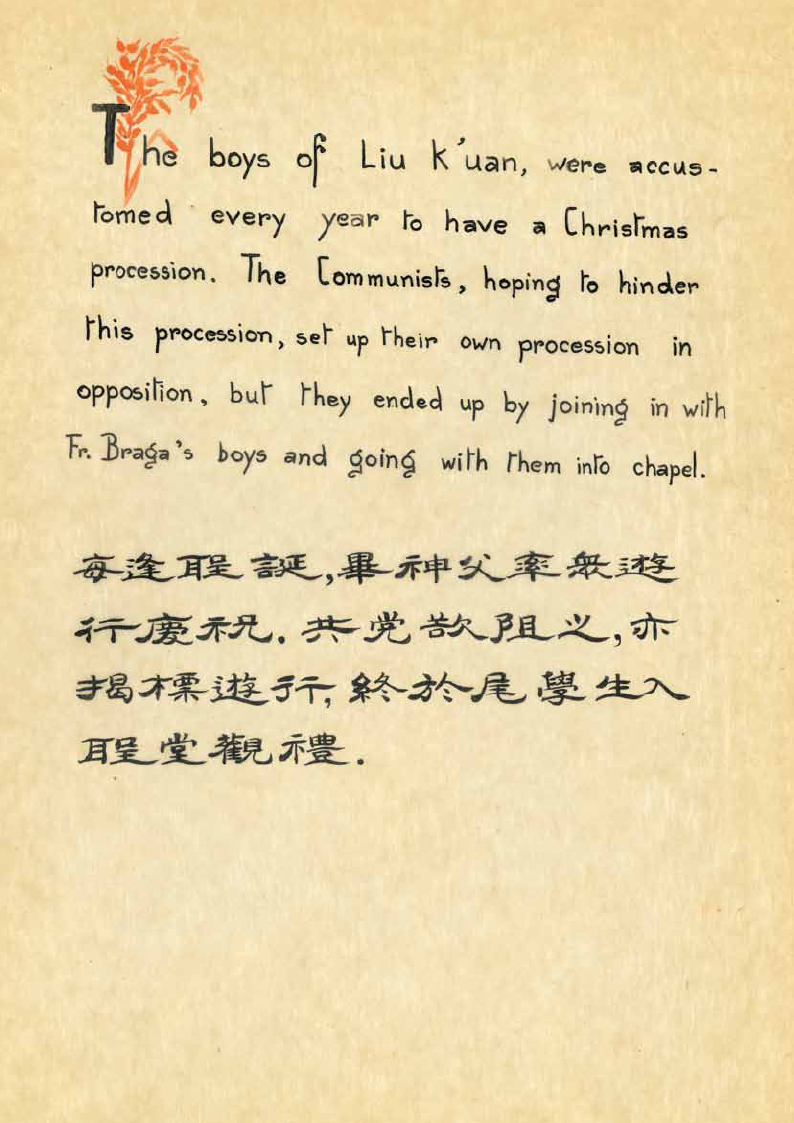 The boys of Liu K'uan, were accus-
tomed every year to have a Christmas
procession. The Communists, hoping to hinder
this procession, set up their own procession in
opposition, but they ended up by joining in with
Fr. Braga's boys and going with them into chapel.
每逢聖誕,畢神父率衆遊
行慶祝. 共党欲阻之,亦
揭標遊行, 終於尾學生入
聖堂觀禮.